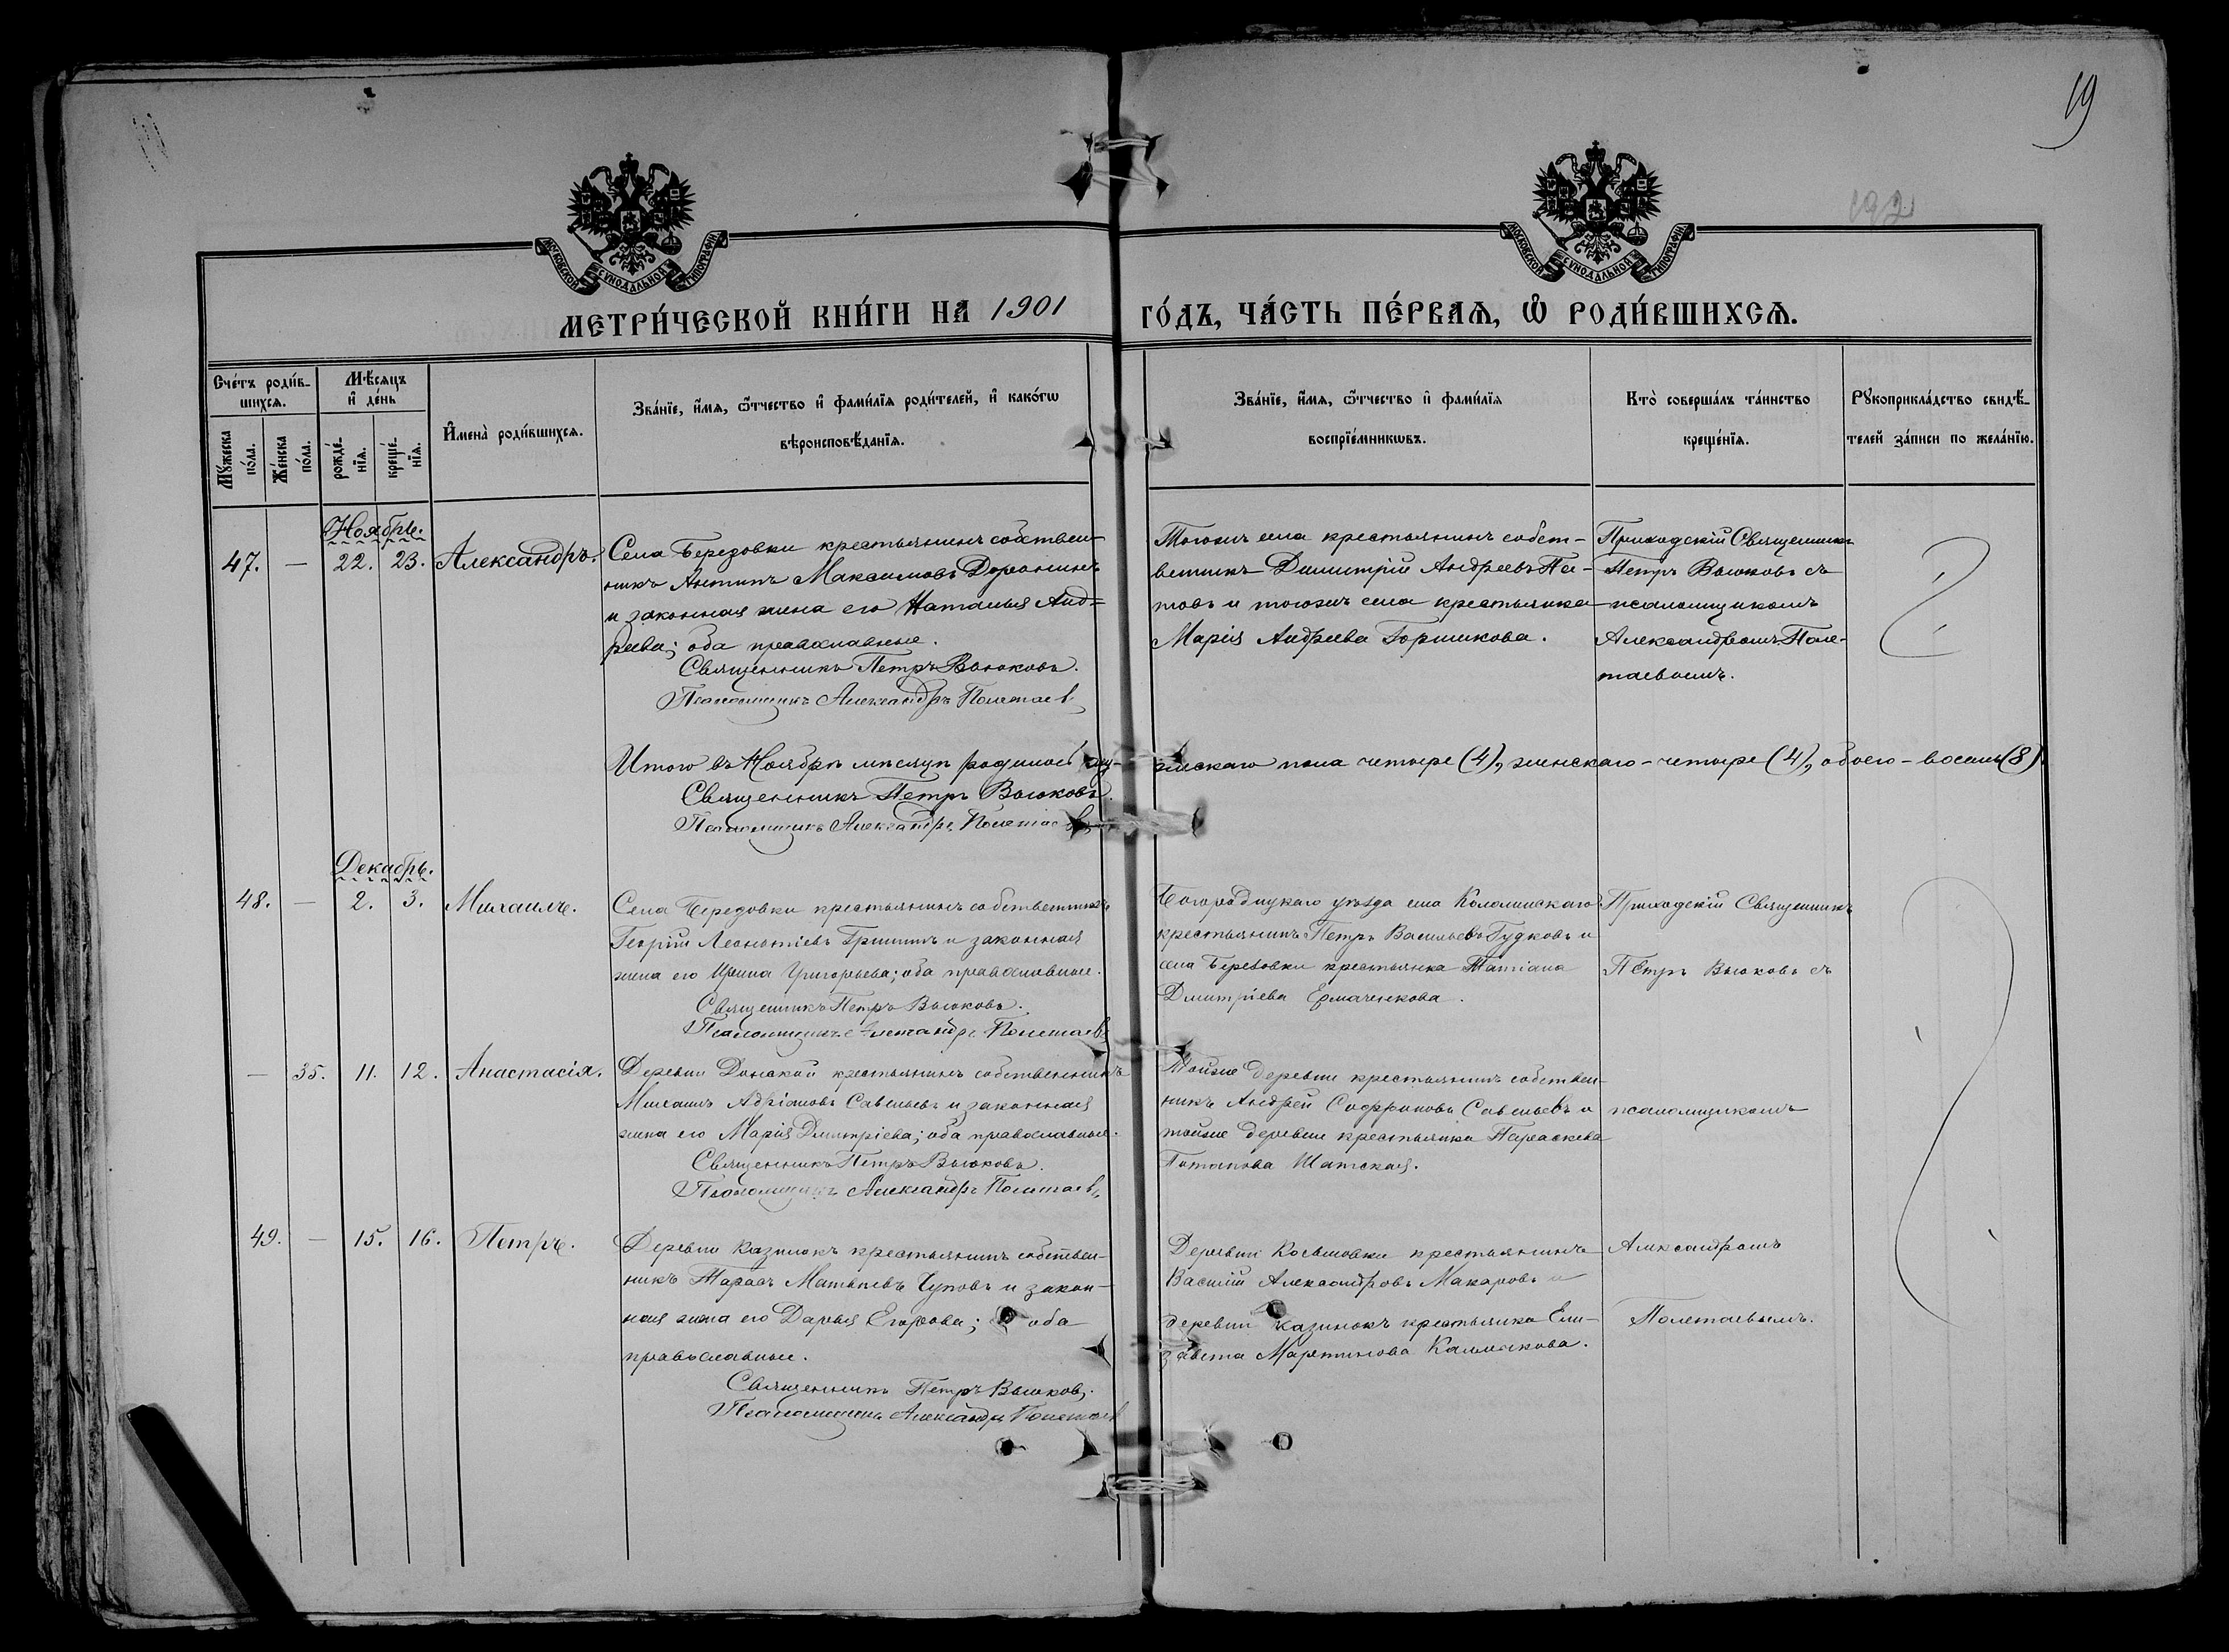 19
192
МОСКОВСКОЙ СѴНОДАЛЬНОЙ ТИПОГРАФІИ
МОСКОВСКОЙ СѴНОДАЛЬНОЙ ТИПОГРАФІИ
МЕТРИ́ЧЕСКОЙ КНИ́ГИ НА 1901 ГО́ДЪ, ЧА́СТЬ ПЕ́РВАѦ, Ѡ РОДИ́ВШИХСѦ.
Сче́тъ роди́в-
шихсѧ.
Мꙋжеска
по́ла.
Же́нска
по́ла.
Мѣ́сяцъ
и҆ де́нь
рожде́-
нїѧ.
креще́-
нїѧ.
И҆мена̀ роди́вшихсѧ.
Зва́нїе, и҆́мѧ, ѻ҆́тчество и҆ фами́лїѧ роди́телей, и҆ како́гѡ
вѣроисповѣ́данїѧ.
Зва́нїе, и҆́мѧ, ѻ҆́тчество и҆ фами́лїѧ
воспрїе́мникѡвъ.
Кто̀ соверша́лъ та́инство
креще́нїѧ.
Рꙋкоприкла́дство свидѣ́-
телей за́писи по жела́нїю.
Ноябрь.
47. — 22. 23. Александръ.
Села Березовки крестьянинъ собствен-
никъ Антипъ Максимовъ Доронинъ
и законная жена его Наталья Анд=
реева; оба православные.
Священникъ Петръ Вьюковъ.
Псаломщикъ Александръ Полетаевъ
Тогожъ села крестьянинъ собст-
венникъ Димитрій Андреевъ
и тогожъ села крестьянка
Марія Андреева Горшкова.
Приходскій Священникъ
Петръ Вьюковъ съ
псаломщикомъ
Александромъ Поле-
таевымъ.
Итого въ Ноябрѣ мѣсяцѣ родилось му-жескаго пола четыре (4), женскаго - четыре (4), обоего - восемь (8)
Священникъ Петръ Вьюковъ.
Псаломщикъ Александръ Полетаевъ
Декабрь.
48. — 2. 3. Михаилъ.
Села Березовки крестьянинъ собственникъ
Георгій Леонтіевъ Гришинъ и законная
жена его Ирина Григорьева; оба православные.
Священникъ Петръ Вьюковъ.
Псаломщикъ Александръ Полетаевъ
Богородицкаго уѣзда села
крестьянинъ Петръ Васильевъ Гудковъ и
села Березовки крестьянка Татіана
Дмитріева Ермаченкова.
Приходскій Священникъ
Петръ Вьюковъ съ
— 35. 11. 12. Анастасія.
Деревни Донской крестьянинъ собственникъ
Михаилъ Адріановъ Савельевъ и законная
жена его Марія Дмитріева; оба православные.
Священникъ Петръ Вьюковъ.
Псаломщикъ Александръ Полетаевъ
Тойже деревни крестьянинъ собствен-
никъ Андрей Софроновъ Савельевъ и
тойже деревни крестьянка Параскева
Потапова Шатская.
псаломщикомъ
49. — 15. 16. Петръ.
Деревни Казинокъ крестьянинъ собствен-
никъ Тарасъ Матвѣевъ Чуповъ и закон-
ная жена его Дарья Егорова; оба
православные.
Священникъ Петръ Вьюковъ.
Псаломщикъ Александръ Полетаевъ
Деревни крестьянинъ
Василій Александровъ Макаровъ и
деревни Казинокъ крестьянка Ели-
завета Мартинова Калмыкова.
Александромъ
Полетаевымъ.